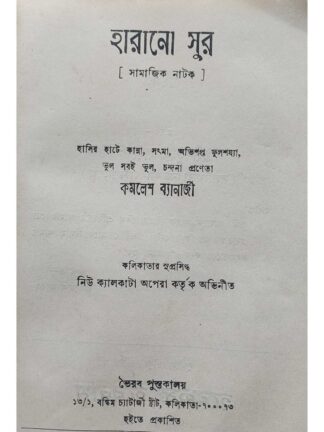 হারানো সুর
[ সামাজিক নাটক ]
হাসির হাটে কান্না, সৎমা, অভিশপ্ত ফুলশয্যা,
ভুল সবই ভুল, চন্দনা প্রণেতা
কমলেশ ব্যানার্জী
কলিকাতার সুপ্রসিদ্ধ
নিউ ক্যালকাটা অপেরা কর্তৃক অভিনীত
ভৈরব পুস্তকালয়
১৩/১, বঙ্কিম চ্যাটার্জী ষ্ট্রীট, কলিকাতা-৭০০০৭৩
হইতে প্রকাশিত